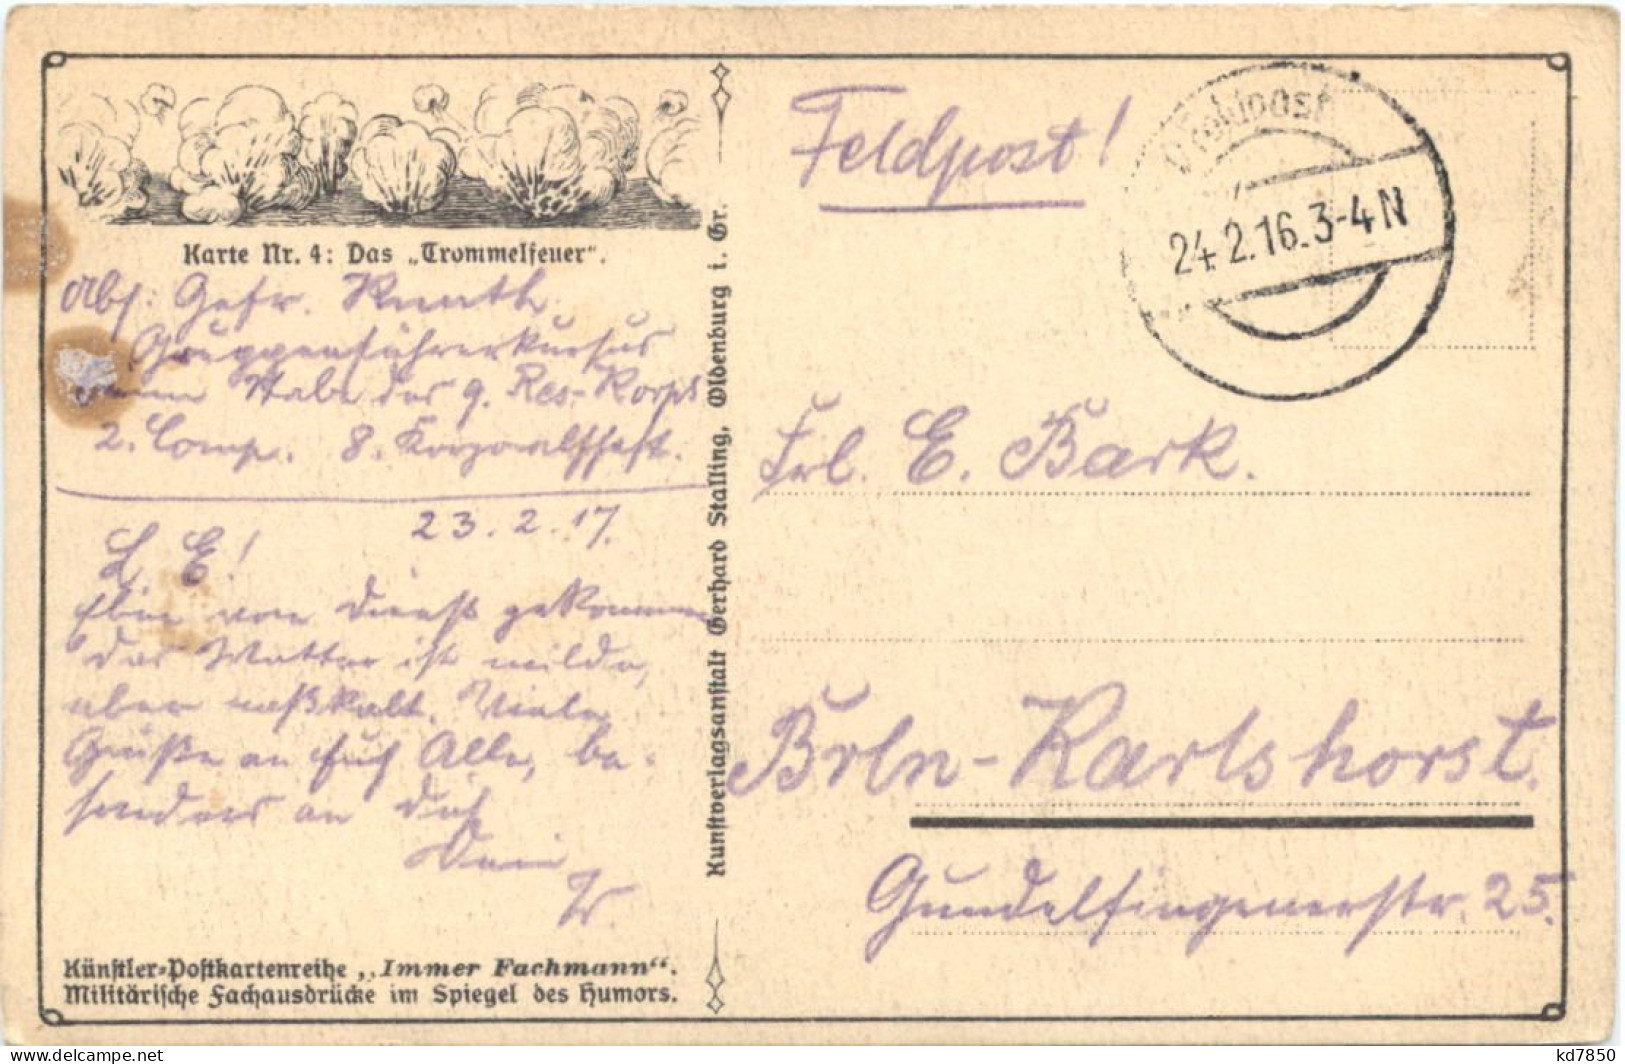 Karte Nr. 4: Das „Trommelfeuer".
Abs. Gefr. Knuth.
Gruppenführerkursus
beim Stabe des 9. Res-Korps
2. Comp. 8. Korporalschaft.
23.2.17.
L. E!
Eben von Dienst gekommen
das Wetter ist milde,
aber naßkalt. Viele
Grüße an Euch Alle, be-
sonders an Dich
Dein
W.
Künstler-Postkartenreihe „Immer Fachmann".
Militärische Fachausdrücke im Spiegel des Humors.
Kunstverlagsanstalt Gerhard Stalling, Oldenburg i. Gr.
Feldpost!
Feldpost
24.2.16.3-4N
Frl. E. Bark.
Brln-Karlshorst.
Gundelfingenerstr. 25.
www.delcampe.net
kd7850